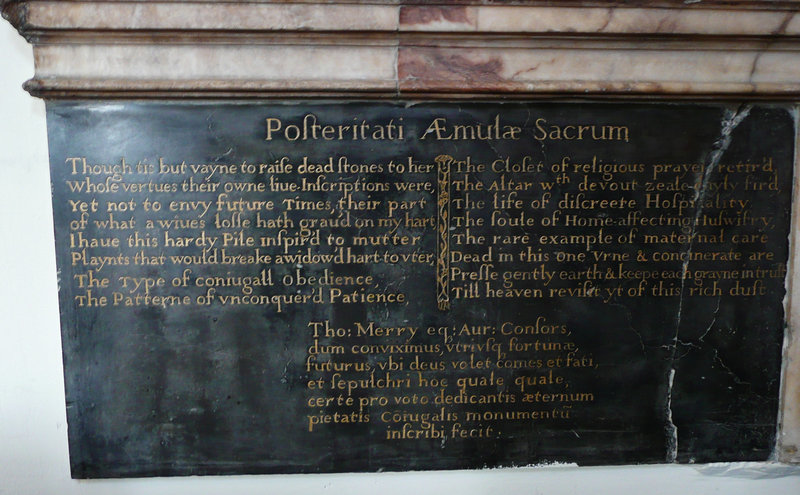 Poſteritati Æmulæ Sacrum
Though tis but vayne to raiſe dead ſtones to her
Whoſe vertues their owne liue-Inſcriptions were,
Yet not to envy future Times, their part
of what a wiues loſſe hath grau'd on my hart
I haue this hardy Pile inſpir'd to mutter
Playnts that would breake a widow'd hart to vter,
The Type of coniugall obedience
The Patterne of vnconquer'd Patience
The Cloſet of religious prayer retir'd,
The Altar wth devout zeale fir'd
The life of diſcreete Hoſpitality
The ſoule of Home-affecting Huſwifry,
The rare example of maternal care
Dead in this one Vrne & concinerate are
Preſſe gently earth & keepe each grayne in truſt
Till heaven reviſit yt of this rich duſt
Tho: Merry eq: Aur: Conſors,
dum conviximus, vtriuſq fortunæ,
futurus, vbi deus volet comes et fati,
et ſepulchri hoc quale, quale,
certe pro voto dedicantis æternum
pietatis Coiugalis monumentū
inſcribi fecit.